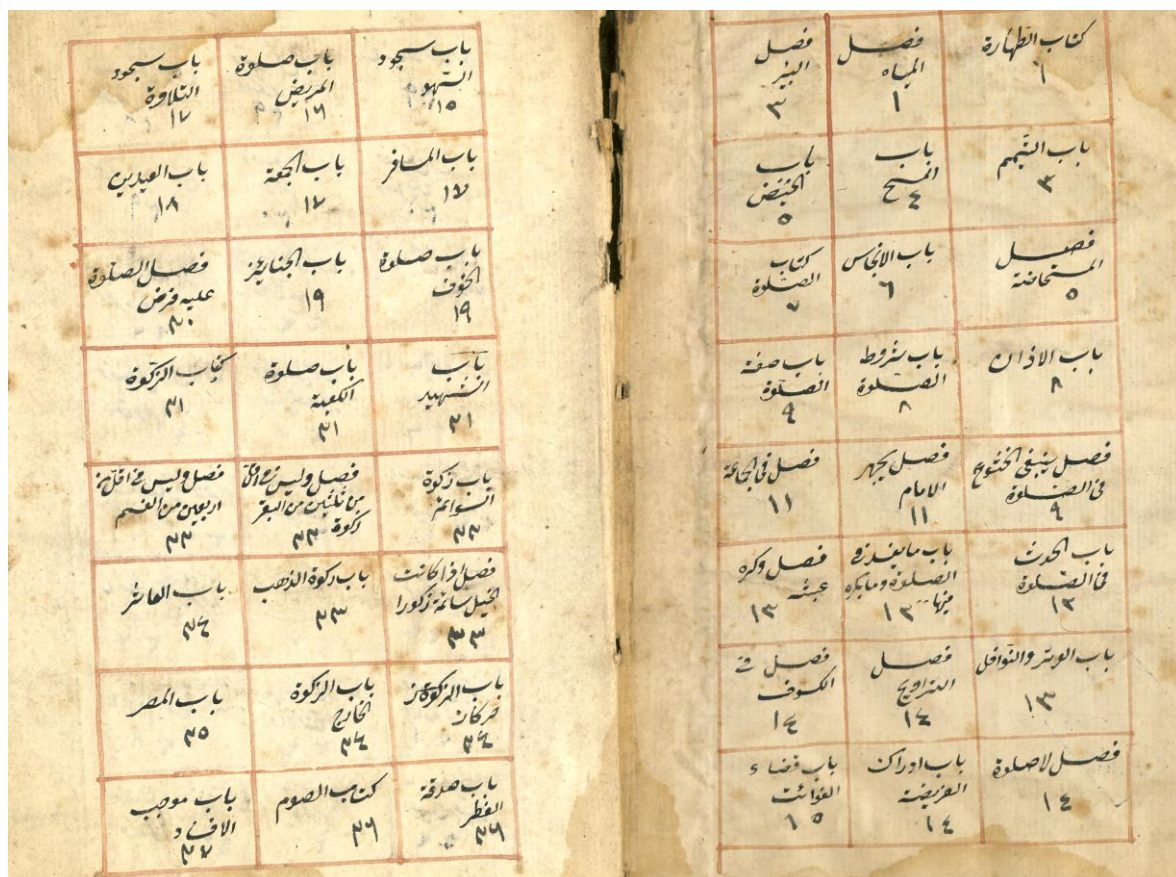 كتاب الطهارة
١
فصل
المياه
١
فصل
البئر
٣
باب التيمم
٣
باب
المسح
٤
باب
الحيض
٥
فصل
المستحاضة
٥
باب الانجاس
٦
كتاب
الصلوة
٧
باب الاذان
٨
باب شروط
الصلوة
٨
باب صفة
الصلوة
٩
فصل ينبغى الخشوع
فى الصلوة
٩
فصل يجهر
الامام
١١
فصل فى الجماعة
١١
باب الحدث
فى الصلوة
١٢
باب ما يفسد
الصلوة وما يكره
فيها
١٣
فصل وكره
عبثه
١٣
باب الوتر والنوافل
١٣
فصل
التراويح
١٤
فصل في
الكسوف
١٤
فصل لا صلوة
١٤
باب ادراك
الفريضة
١٤
باب قضاء
الفوائت
١٥
باب سجود
السهو
١٥
باب صلوة
المريض
١٦
باب سجود
التلاوة
١٧
باب المسافر
١٧
باب الجمعة
١٧
باب العيدين
١٨
باب صلوة
الخوف
١٩
باب الجنائز
١٩
فصل الصلوة
عليه فرض
٢٠
باب
الشهيد
٢١
باب صلوة
الكعبة
٢١
كتاب الزكوة
٢١
باب زكوة
السوائم
٢٢
فصل وليس في اقل
من ثلثين من البقر
زكوة ٢٢
فصل وليس في اقل من
اربعين من الغنم
٢٢
فصل اذا كانت
الخيل سائمة زكورا
٢٣
باب زكوة الذهب
٢٣
باب العاشر
٢٤
باب الركاز
٢٤
باب الزكوة
الخارج
٢٤
باب المصر
٢٥
باب صدقة
الفطر
٢٦
كتاب الصوم
٢٦
باب موجب
الافساد
٢٧